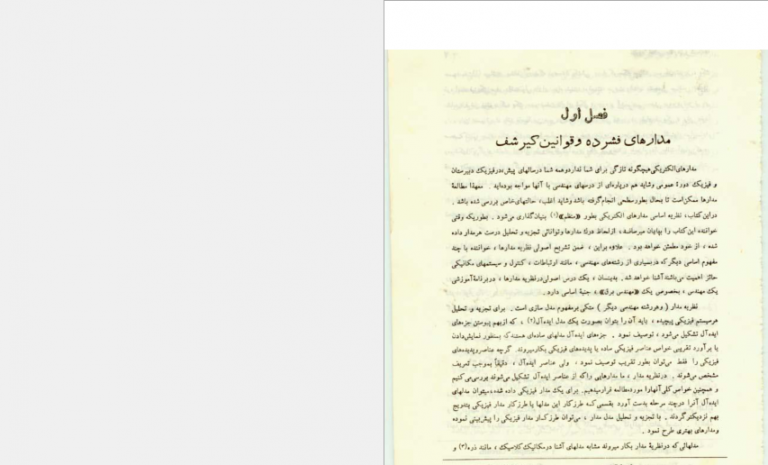 فصل اول
مدارهای فشرده و قوانین کیرشف
مدارهای الکتریکی هیچگونه تازگی برای شما ندارد و همه شما در سالهای پیش در فیزیک دبیرستان
و فیزیک دورهٔ عمومی و شاید هم در پاره‌ای از درسهای مهندسی با آنها مواجه بوده‌اید . معهذا مطالعهٔ
مدارها ممکن است تا بحال بطور سطحی انجام گرفته باشد و شاید اغلب، حالتهای خاص بررسی شده باشد .
در این کتاب، نظریه اساسی مدارهای الکتریکی بطور «منظم»(۱) بنیان‌گذاری می‌شود . بطوریکه وقتی
خواننده این کتاب را بپایان میرساند، از لحاظ درک مدارها و توانائی تجزیه و تحلیل درست هر مدار داده
شده ، از خود مطمئن خواهد بود . علاوه براین ، ضمن تشریح اصولی نظریه مدارها ، خواننده با چند
مفهوم اساسی دیگر که در بسیاری از رشته‌های مهندسی ، مانند ارتباطات ، کنترل و سیستمهای مکانیکی
حائز اهمیت می‌باشند آشنا خواهد شد. بدینسان ، یک درس اصولی در نظریه مدارها ، در برنامهٔ آموزشی
یک مهندس ، بخصوص یک «مهندس برق» ، جنبهٔ اساسی دارد .
نظریه مدار ( و هر رشته مهندسی دیگر ) متکی بر مفهوم مدل سازی است . برای تجزیه و تحلیل
هر سیستم فیزیکی پیچیده ، باید آن را بتوان بصورت یک مدل ایده‌آل(۲) ، که از بهم پیوستن جزءهای
ایده‌آل تشکیل می‌شود ، توصیف نمود . جزءهای ایده‌آل مدلهای ساده‌ای هستند که بمنظور نمایش‌دادن
یا برآورد تقریبی خواص عناصر فیزیکی ساده یا پدیده‌های فیزیکی بکار میروند. گرچه عناصر و پدیده‌های
فیزیکی را فقط می‌توان بطور تقریب توصیف نمود ، ولی عناصر ایده‌آل ، دقیقاً بموجب تعریف
مشخص می‌شوند . در نظریه مدار ، ما مدارهایی را که از عناصر ایده‌آل تشکیل می‌شوند بررسی می‌کنیم
و همچنین خواص کلی آنها را مورد مطالعه قرار میدهیم. برای یک مدار فیزیکی داده شده، میتوان مدلهای
ایده‌آل آنرا در چند مرحله بدست آورد بقسمی که طرز کار این مدلها با طرز کار مدار فیزیکی بتدریج
بهم نزدیکتر گردند . با تجزیه و تحلیل مدل مدار ، می‌توان طرز کار مدار فیزیکی را پیش‌بینی نموده
و مدارهای بهتری طرح نمود .
مدلهائی که در نظریهٔ مدار بکار میروند مشابه مدلهای آشنا در مکانیک کلاسیک ، مانند ذره(۳) و